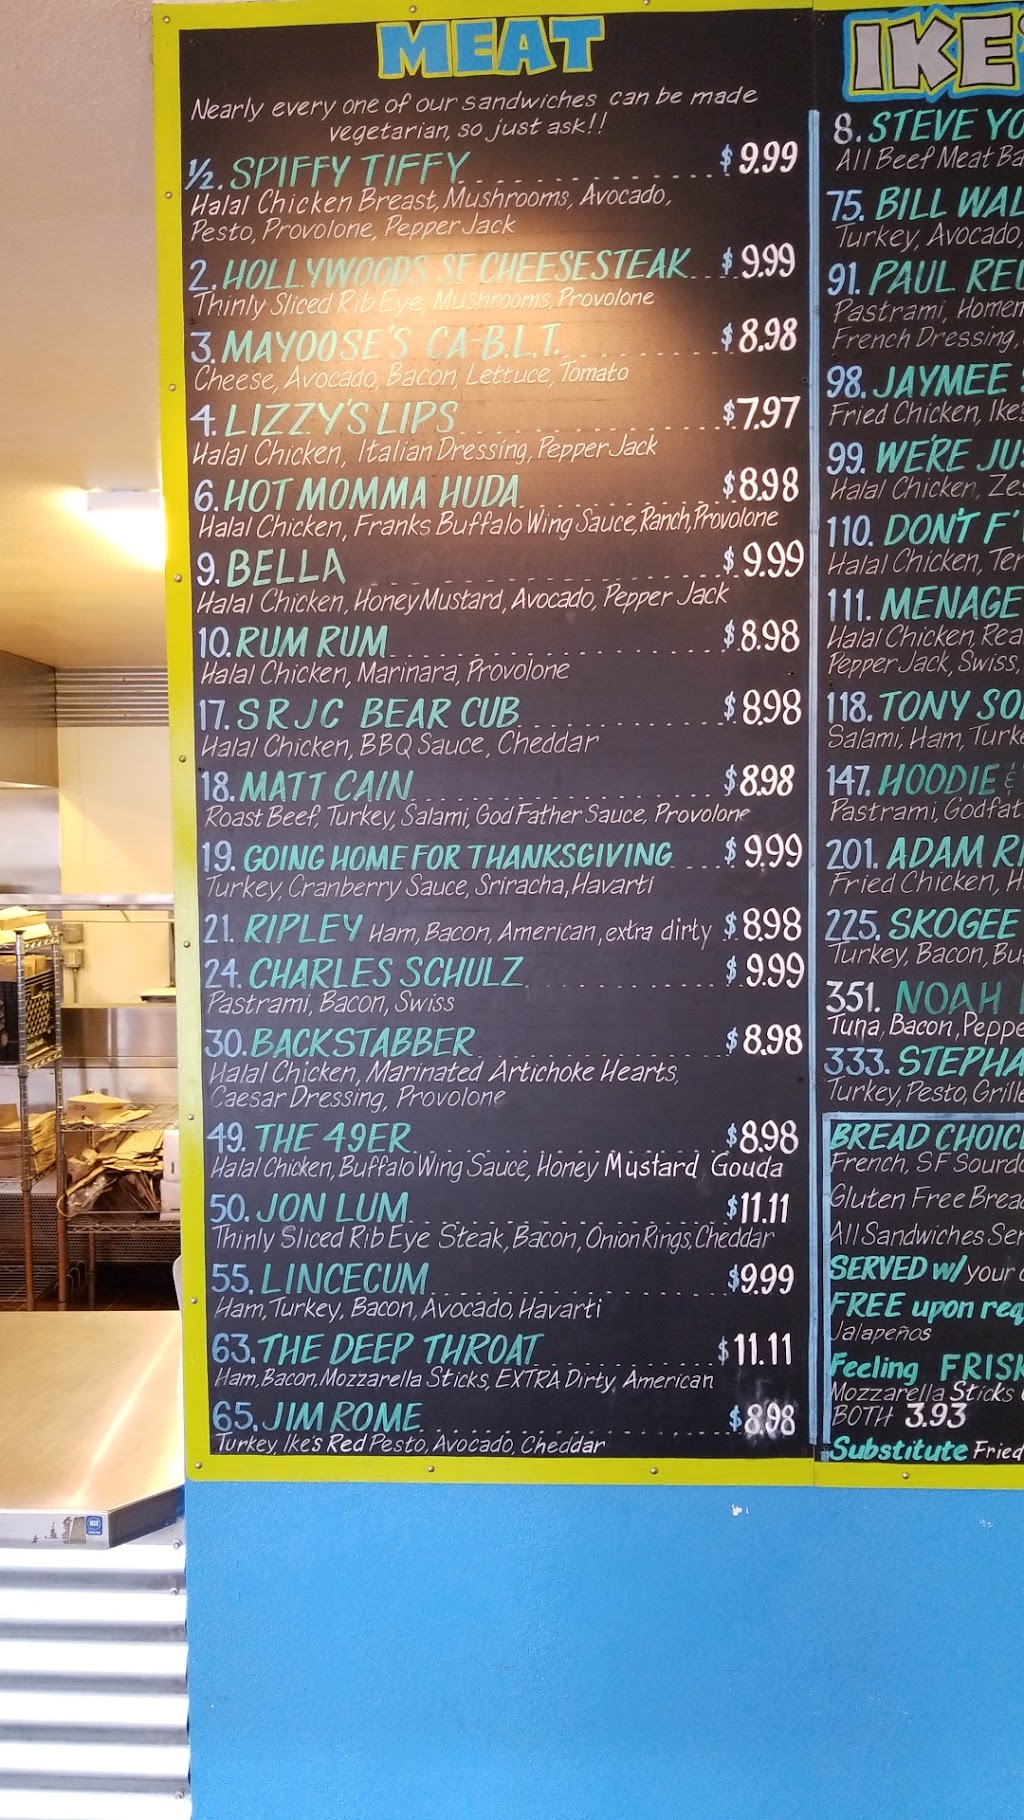 MEAT
Nearly every one of our sandwiches can be made
vegetarian, so just ask!!
½. SPIFFY TIFFY $9.99
Halal Chicken Breast, Mushrooms, Avocado,
Pesto, Provolone, Pepper Jack
2. HOLLYWOODS SF CHEESESTEAK $9.99
Thinly Sliced Rib Eye, Mushrooms, Provolone
3. MAYOOSE'S CA-B.L.T. $8.98
Cheese, Avocado, Bacon, Lettuce, Tomato
4. LIZZY'S LIPS $7.97
Halal Chicken, Italian Dressing, Pepper Jack
6. HOT MOMMA HUDA $8.98
Halal Chicken, Franks Buffalo Wing Sauce, Ranch, Provolone
9. BELLA $9.99
Halal Chicken, Honey Mustard, Avocado, Pepper Jack
10. RUM RUM $8.98
Halal Chicken, Marinara, Provolone
17. SRJC BEAR CUB $8.98
Halal Chicken, BBQ Sauce, Cheddar
18. MATT CAIN $8.98
Roast Beef, Turkey, Salami, God Father Sauce, Provolone
19. GOING HOME FOR THANKSGIVING $9.99
Turkey, Cranberry Sauce, Sriracha, Havarti
21. RIPLEY Ham, Bacon, American, extra dirty $8.98
24. CHARLES SCHULZ $9.99
Pastrami, Bacon, Swiss
30. BACKSTABBER $8.98
Halal Chicken, Marinated Artichoke Hearts,
Caesar Dressing, Provolone
49. THE 49ER $8.98
Halal Chicken, Buffalo Wing Sauce, Honey Mustard, Gouda
50. JON LUM $11.11
Thinly Sliced Rib Eye Steak, Bacon, Onion Rings, Cheddar
55. LINCECUM $9.99
Ham, Turkey, Bacon, Avocado, Havarti
63. THE DEEP THROAT $11.11
Ham, Bacon, Mozzarella Sticks, EXTRA Dirty, American
65. JIM ROME $8.98
Turkey, Ike's Red Pesto, Avocado, Cheddar
IKE'
8. STEVE YO
All Beef Meat Ba
75. BILL WAL
Turkey, Avocado,
91. PAUL REU
Pastrami, Homem
French Dressing,
98. JAYMEE
Fried Chicken, Ike's
99. WE'RE JUS
Halal Chicken, Zes
110. DON'T F'
Halal Chicken, Ter
111. MENAGE
Halal Chicken, Rea
Pepper Jack, Swiss,
118. TONY SO
Salami, Ham, Turke
147. HOODIE &
Pastrami, Godfat
201. ADAM RI
Fried Chicken, H
225. SKOGEE
Turkey, Bacon, Bu
351. NOAH
Tuna, Bacon, Peppe
333. STEPHA
Turkey, Pesto, Grille
BREAD CHOIC
French, SF Sourdo
Gluten Free Brea
All Sandwiches Ser
SERVED w/ your c
FREE upon req
Jalapeños
Feeling FRISK
Mozzarella Sticks
BOTH 3.93
Substitute Fried